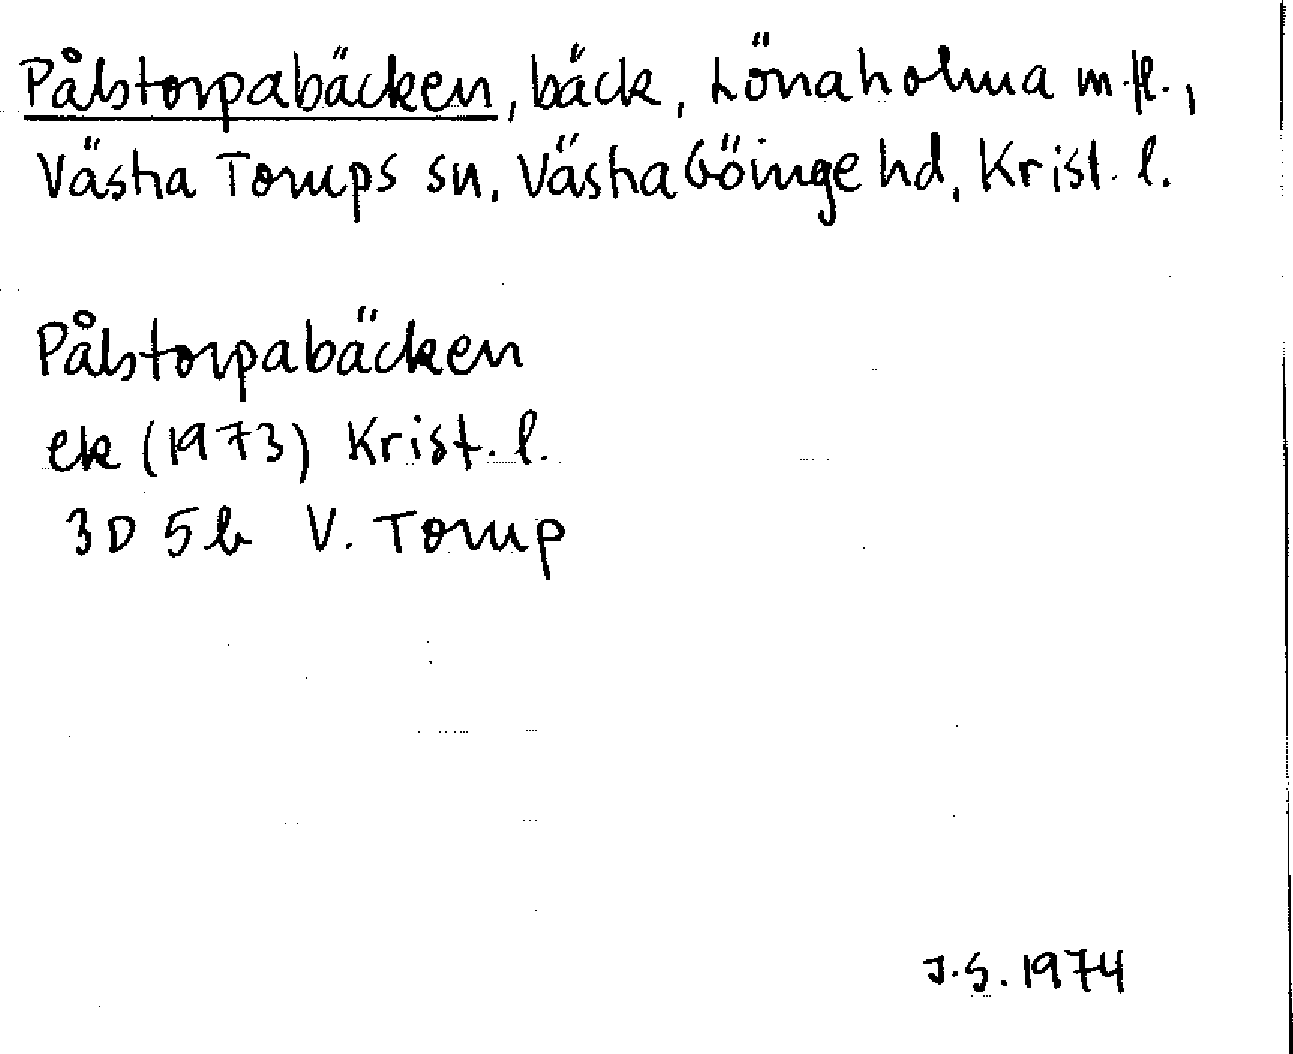 Pålstorpabäcken, bäck, Lönaholma m.fl.,
Västra Torups sn. Västra Göinge hd, Krist. l.
Pålstorpabäcken
ek (1973) Krist. l.
3D 5b V. Torup
J.S. 1974